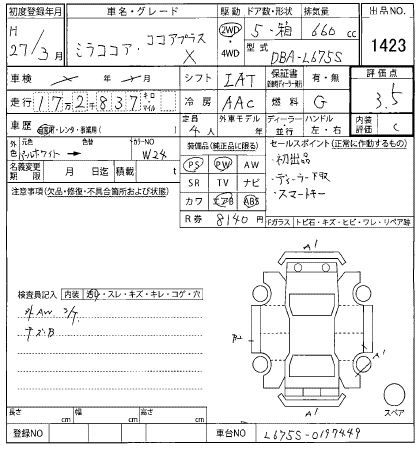 初度登録年月
車名・グレード
駆動
ドア数・形状
排気量
出品NO.
H
27/3月
ミラココア・ココアプラスX
2WD
・
4WD
5・箱
660 cc
型式
DBA-L675S
1423
車検
シフト
IAT
保証書
有・無
評価点
3.5
走行
17万2千837
キロ
マイル
冷房
AAC
燃料
G
車歴
自家用・レンタ・事業用( )
定員
4人
外車モデル
年
ディーラー
並行
ハンドル
左・右
内装
評価
C
外色
元色
パールホワイト
色替
カラーNO
W24
装備品(純正品に限る)
セールスポイント(正常に作動するもの)
名義変更
期限
月
日迄
積載
t
PS
PW
AW
・初出品
注意事項(欠品・修復・不具合箇所および状態)
SR
TV
ナビ
・ディーラー下取
カワ
エアB
ABS
・スマートキー
R券
8140円
Fガラス
トビ石・キズ・ヒビ・ワレ・リペア跡
A1
検査員記入
内装
汚れ・スレ・キズ・キレ・コゲ・穴
外AW
キズB
A1
A1
スペア
長さ
cm
幅
cm
高さ
cm
登録NO
車台NO
L675S-0197449